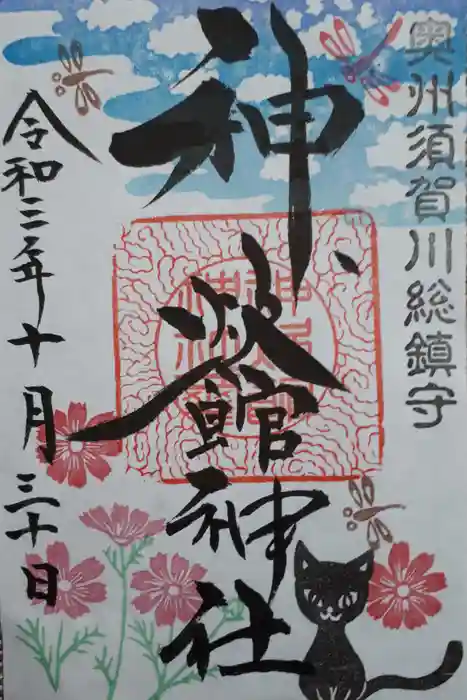 奥州須賀川総鎮守
神炊館神社
令和三年十月三十日